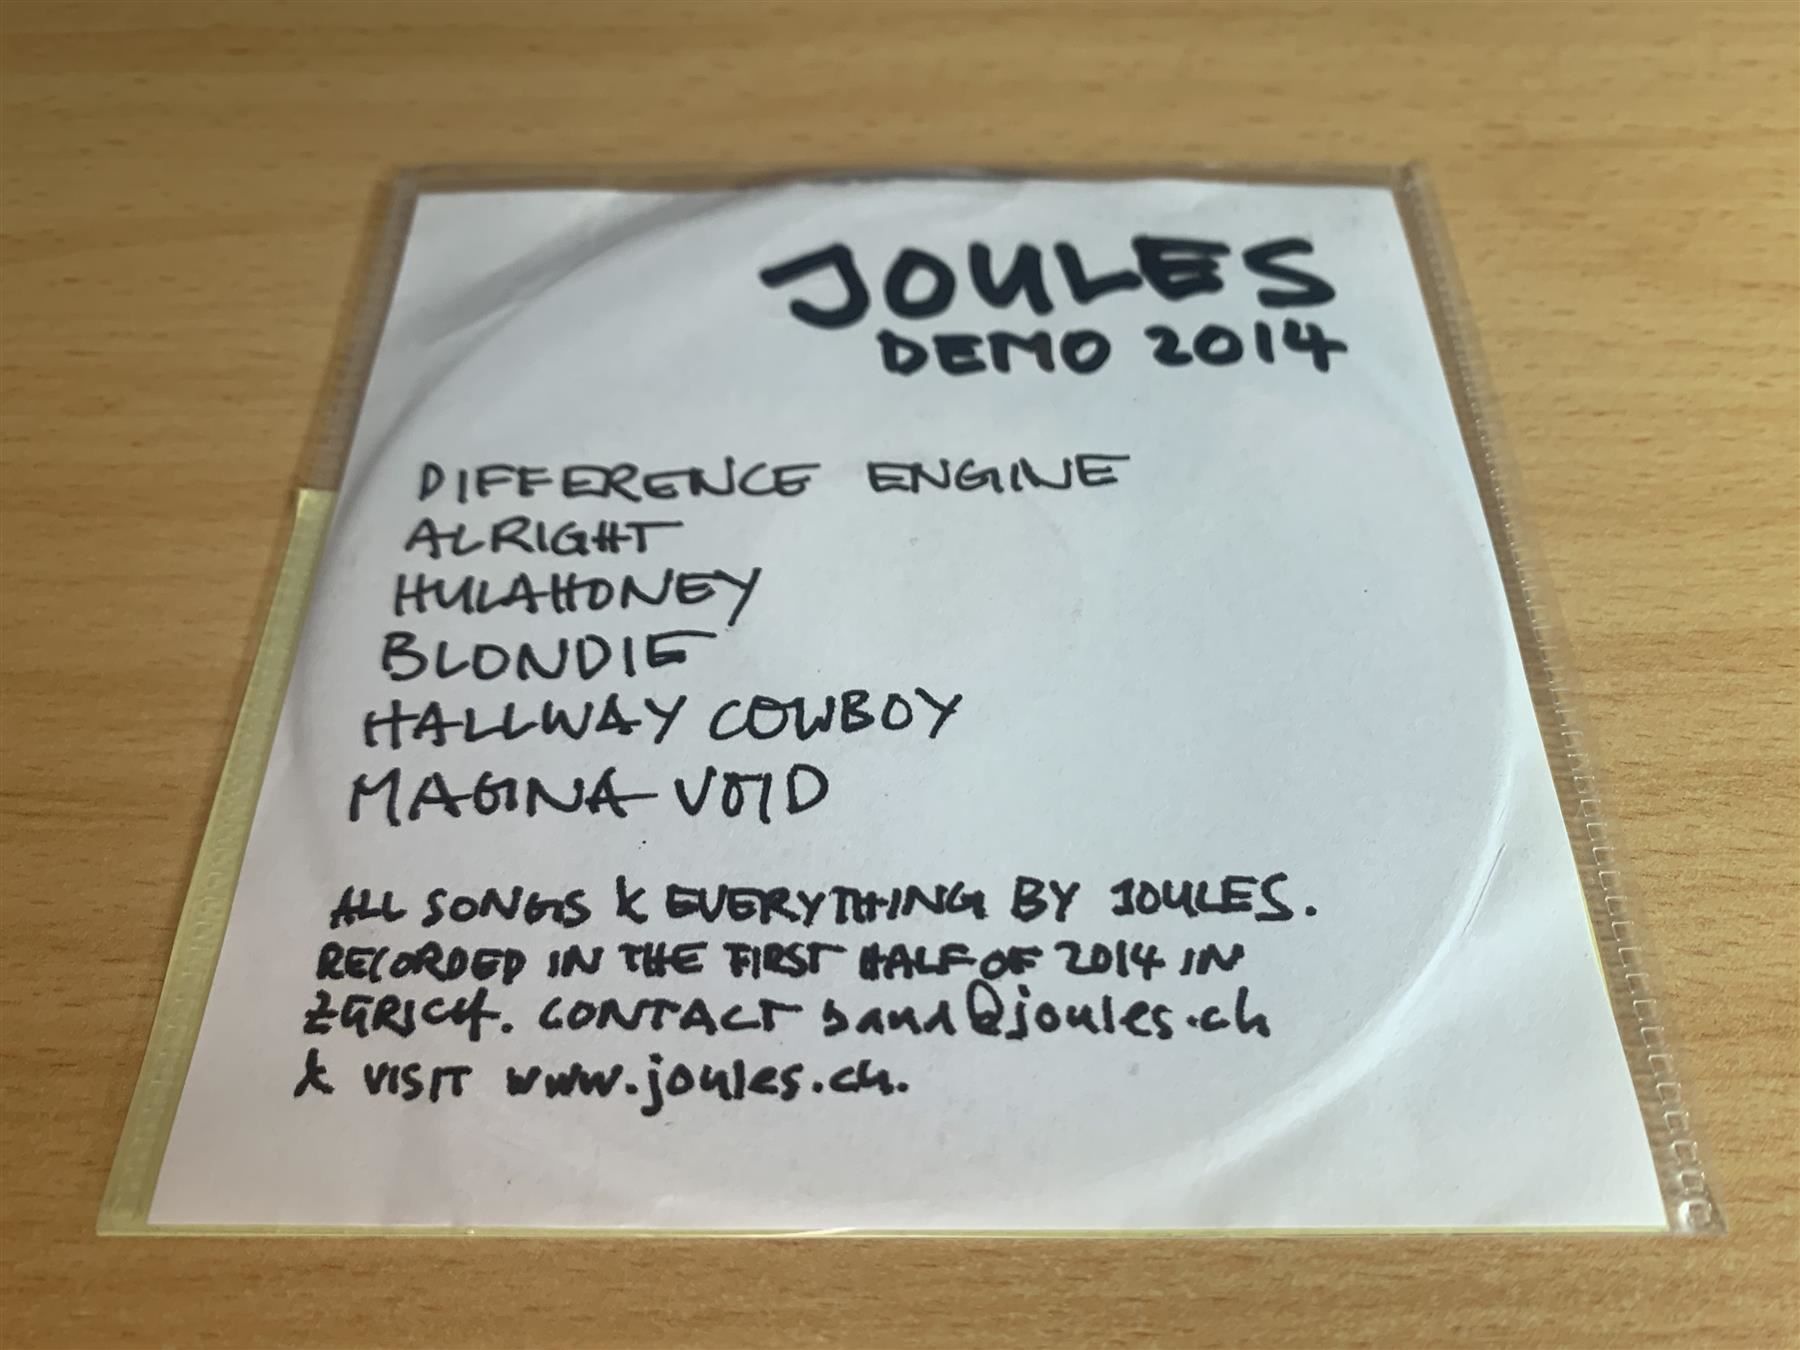 JOULES
DEMO 2014
DIFFERENCE ENGINE
ALRIGHT
HULAHONEY
BLONDIE
HALLWAY COWBOY
MAGINA VOID
ALL SONGS & EVERYTHING BY JOULES.
RECORDED IN THE FIRST HALF OF 2014 IN
ZÜRICH. CONTACT band@joules.ch
& VISIT www.joules.ch.